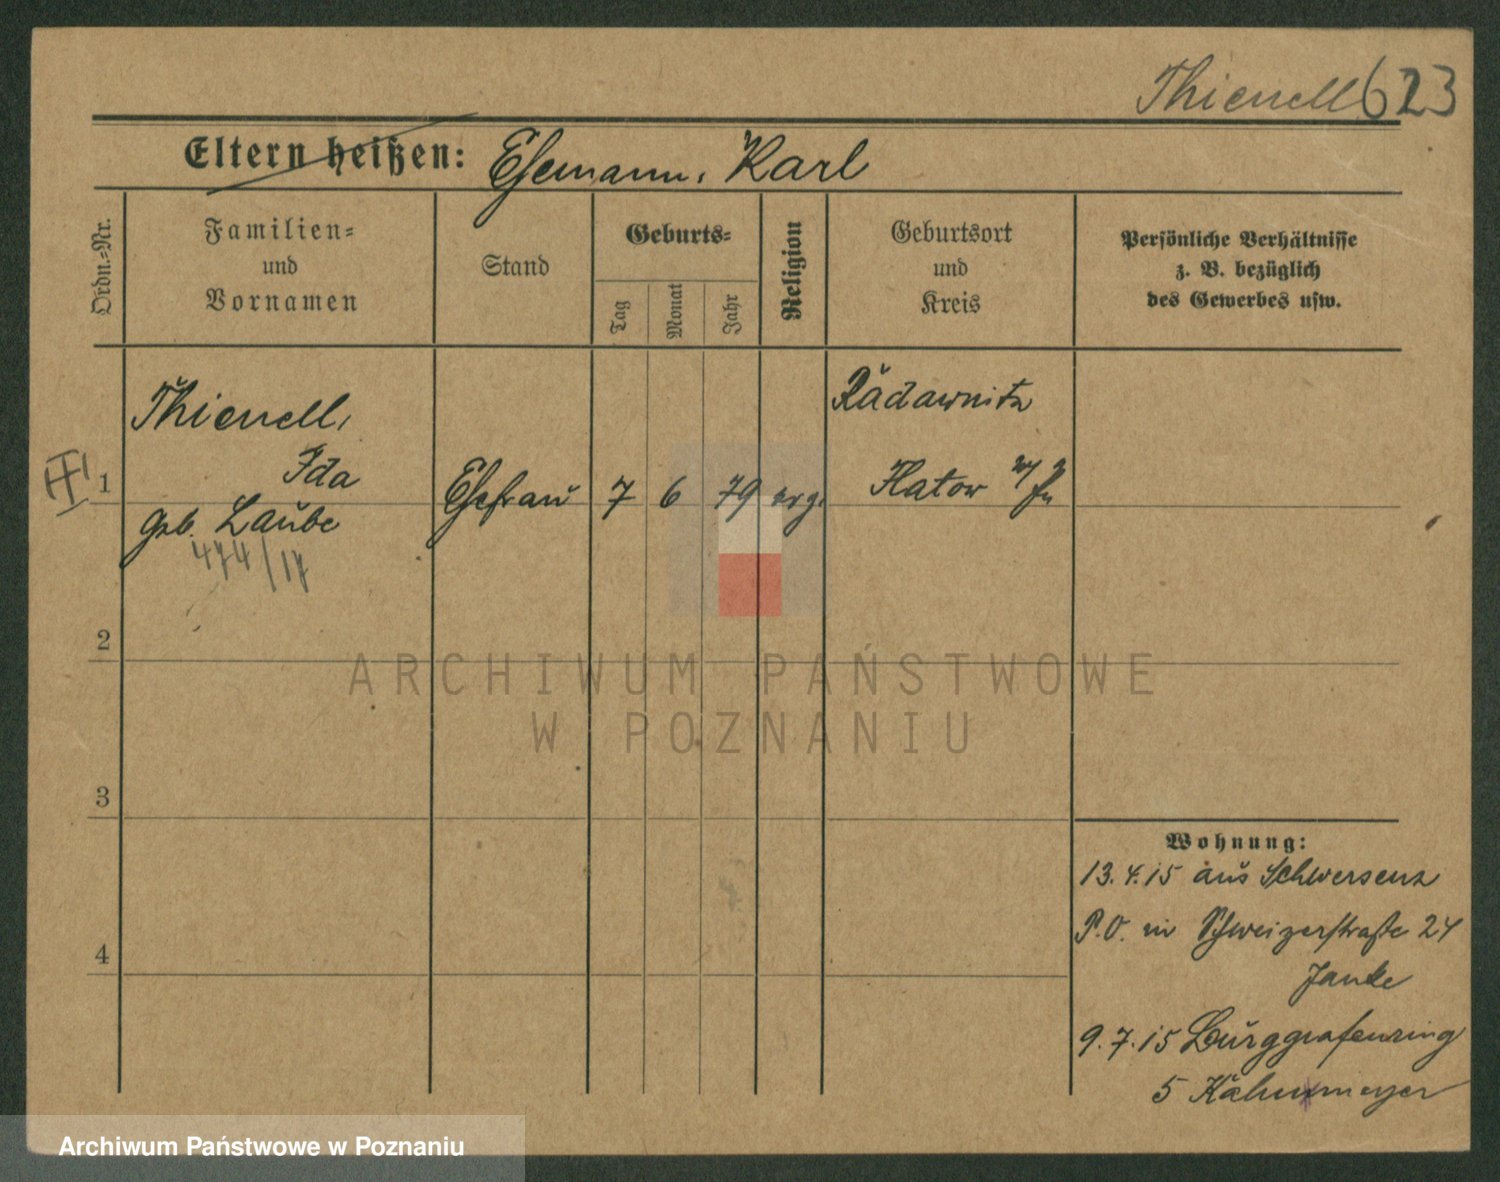 Thienell 623
Eltern heißen: Ehemann, Karl
Ordn.-Nr.
Familien-
und
Vornamen
Stand
Geburts-
Tag
Monat
Jahr
Religion
Geburtsort
und
Kreis
Persönliche Verhältnisse
z. B. bezüglich
des Gewerbes usw.
1
Thienell,
Ida
geb. Laube
474/17
Ehefrau
7
6
79
evg.
Radawnitz
Flatow
2
3
4
Wohnung:
13.4.15 aus Schwersenz
P.O. in Schweizerstraße 24
Janke
9.7.15 Burggrafenring
5
ARCHIWUM PAŃSTWOWE
W POZNANIU
Archiwum Państwowe w Poznaniu